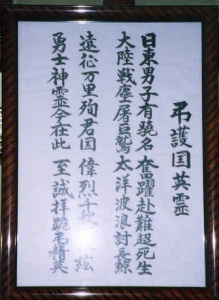 弔護国英霊
日東男子有驍名 奮躍赴難超死生
大陸戦塵屠巨鷲 太洋波浪討長鯨
遠征万里殉君国 偉烈千
勇士神霊今在此 至誠拝跪弔精英